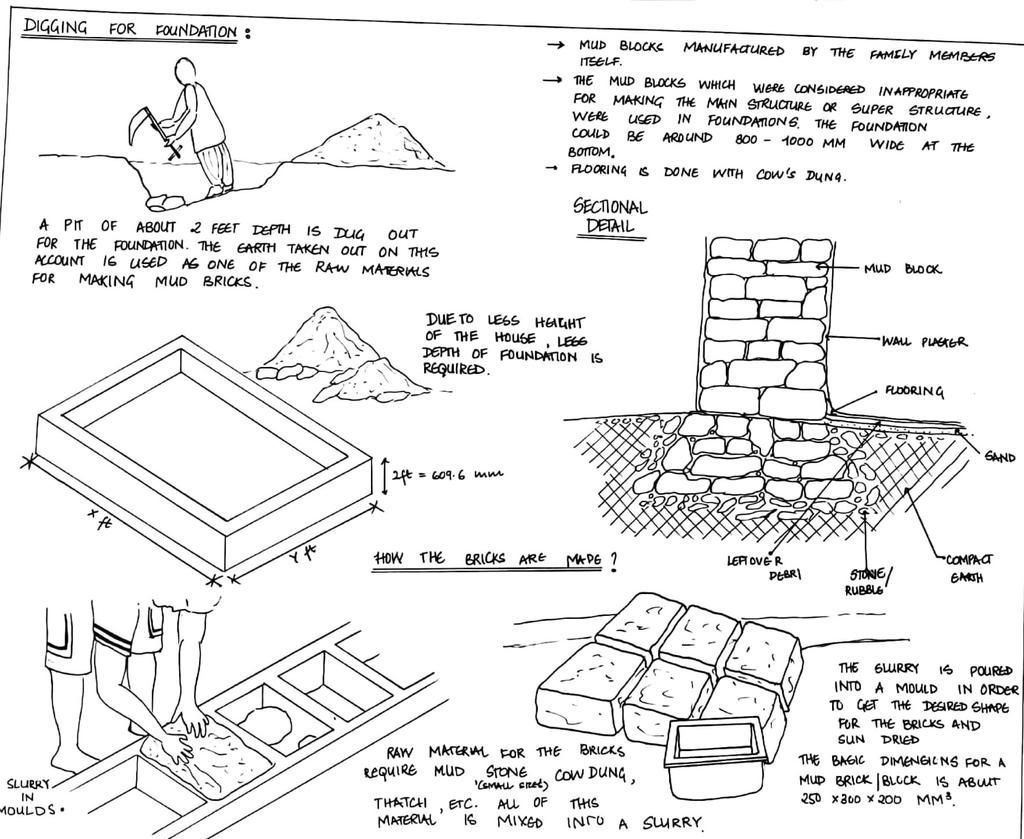 DIGGING FOR FOUNDATION :
A PIT OF ABOUT 2 FEET DEPTH IS DUG OUT
FOR THE FOUNDATION. THE EARTH TAKEN OUT ON THIS
ACCOUNT IS USED AS ONE OF THE RAW MATERIALS
FOR MAKING MUD BRICKS.
→ MUD BLOCKS MANUFACTURED BY THE FAMILY MEMBERS
ITSELF.
→ THE MUD BLOCKS WHICH WERE CONSIDERED INAPPROPRIATE
FOR MAKING THE MAIN STRUCTURE OR SUPER STRUCTURE,
WERE USED IN FOUNDATIONS. THE FOUNDATION
COULD BE AROUND 800 - 1000 MM WIDE AT THE
BOTTOM.
→ FLOORING IS DONE WITH COW'S DUNG.
SECTIONAL
DETAIL
MUD BLOCK
WALL PLASTER
FLOORING
SAND
COMPACT
EARTH
STONE/
RUBBLE
LEFTOVER
DEBRI
DUE TO LESS HEIGHT
OF THE HOUSE, LESS
DEPTH OF FOUNDATION IS
REQUIRED.
2ft = 609.6 mm
x ft
Y ft
HOW THE BRICKS ARE MADE ?
SLURRY
IN
MOULDS.
RAW MATERIAL FOR THE BRICKS
REQUIRE MUD STONE COW DUNG,
(SMALL SIZES)
THATCH, ETC. ALL OF THIS
MATERIAL IS MIXED INTO A SLURRY.
THE SLURRY IS POURED
INTO A MOULD IN ORDER
TO GET THE DESIRED SHAPE
FOR THE BRICKS AND
SUN DRIED
THE BASIC DIMENSIONS FOR A
MUD BRICK/BLOCK IS ABOUT
250 x 300 x 200 MM³.